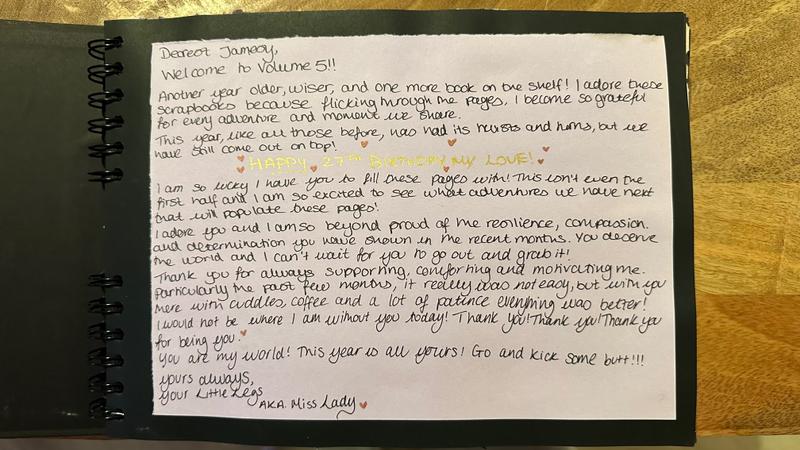 Dearest Jameoy,
Welcome to Volume 5!!
Another year older, wiser, and one more book on the shelf! I adore these
scrapbooks because flicking through the pages, I become so grateful
for every adventure and moment we share.
This year, like all those before, has had its twists and turns, but we
have still come out on top!
HAPPY 27TH BIRTHDAY MY LOVE!
I am so lucky I have you to fill these pages with! This isn't even the
first half and I am so excited to see what adventures we have next
that will populate these pages!
I adore you and I am so beyond proud of the resilience, compassion.
and determination you have shown in the recent months. You deserve
the world and I can't wait for you to go out and grab it!
Thank you for always supporting, comforting and motivating me.
Particularly the past few months, it really was not easy, but with you
here with cuddles, coffee and a lot of patince everything was better!
I would not be where I am without you today! Thank you! Thank you! Thank you
for being you.
You are my world! This year is all yours! Go and kick some butt!!!
yours always,
your Little Legs
AKA. Miss Lady